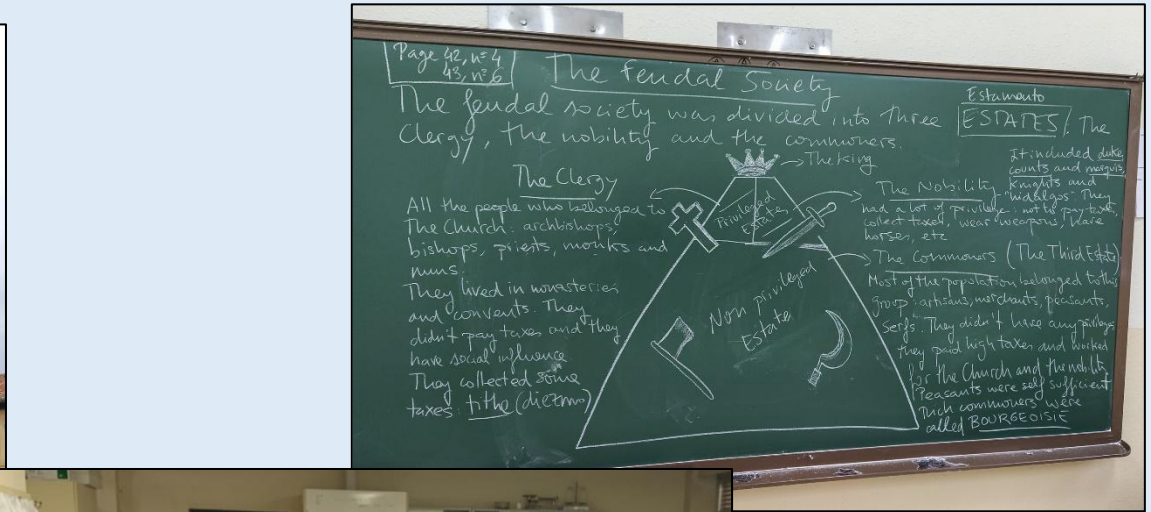 Page 42, nº 4
43, nº 6
The Feudal Society
Estamento
The feudal society was divided into three ESTATES. The
Clergy, the nobility and the commoners.
The King
The Clergy
All the people who belonged to
the Church: archbishops,
bishops, priests, monks and
nuns.
They lived in monasteries
and convents. They
didn't pay taxes and they
have social influence
They collected some
taxes: tithe (diezmo)
Privileged
Estate
Non privileged
Estate
The Nobility
It included duke,
counts and marquis,
Knights and
"hidalgos". They
had a lot of privilege: not to pay taxes,
collect taxes, wear weapons, have
horses, etc
The Commoners (The Third Estate)
Most of the population belonged to this
group: artisans, merchants, peasants,
serfs. They didn't have any privileges
they paid high taxes and worked
for the Church and the nobility
Peasants were self sufficient
Rich commoners were
called BOURGEOISIE